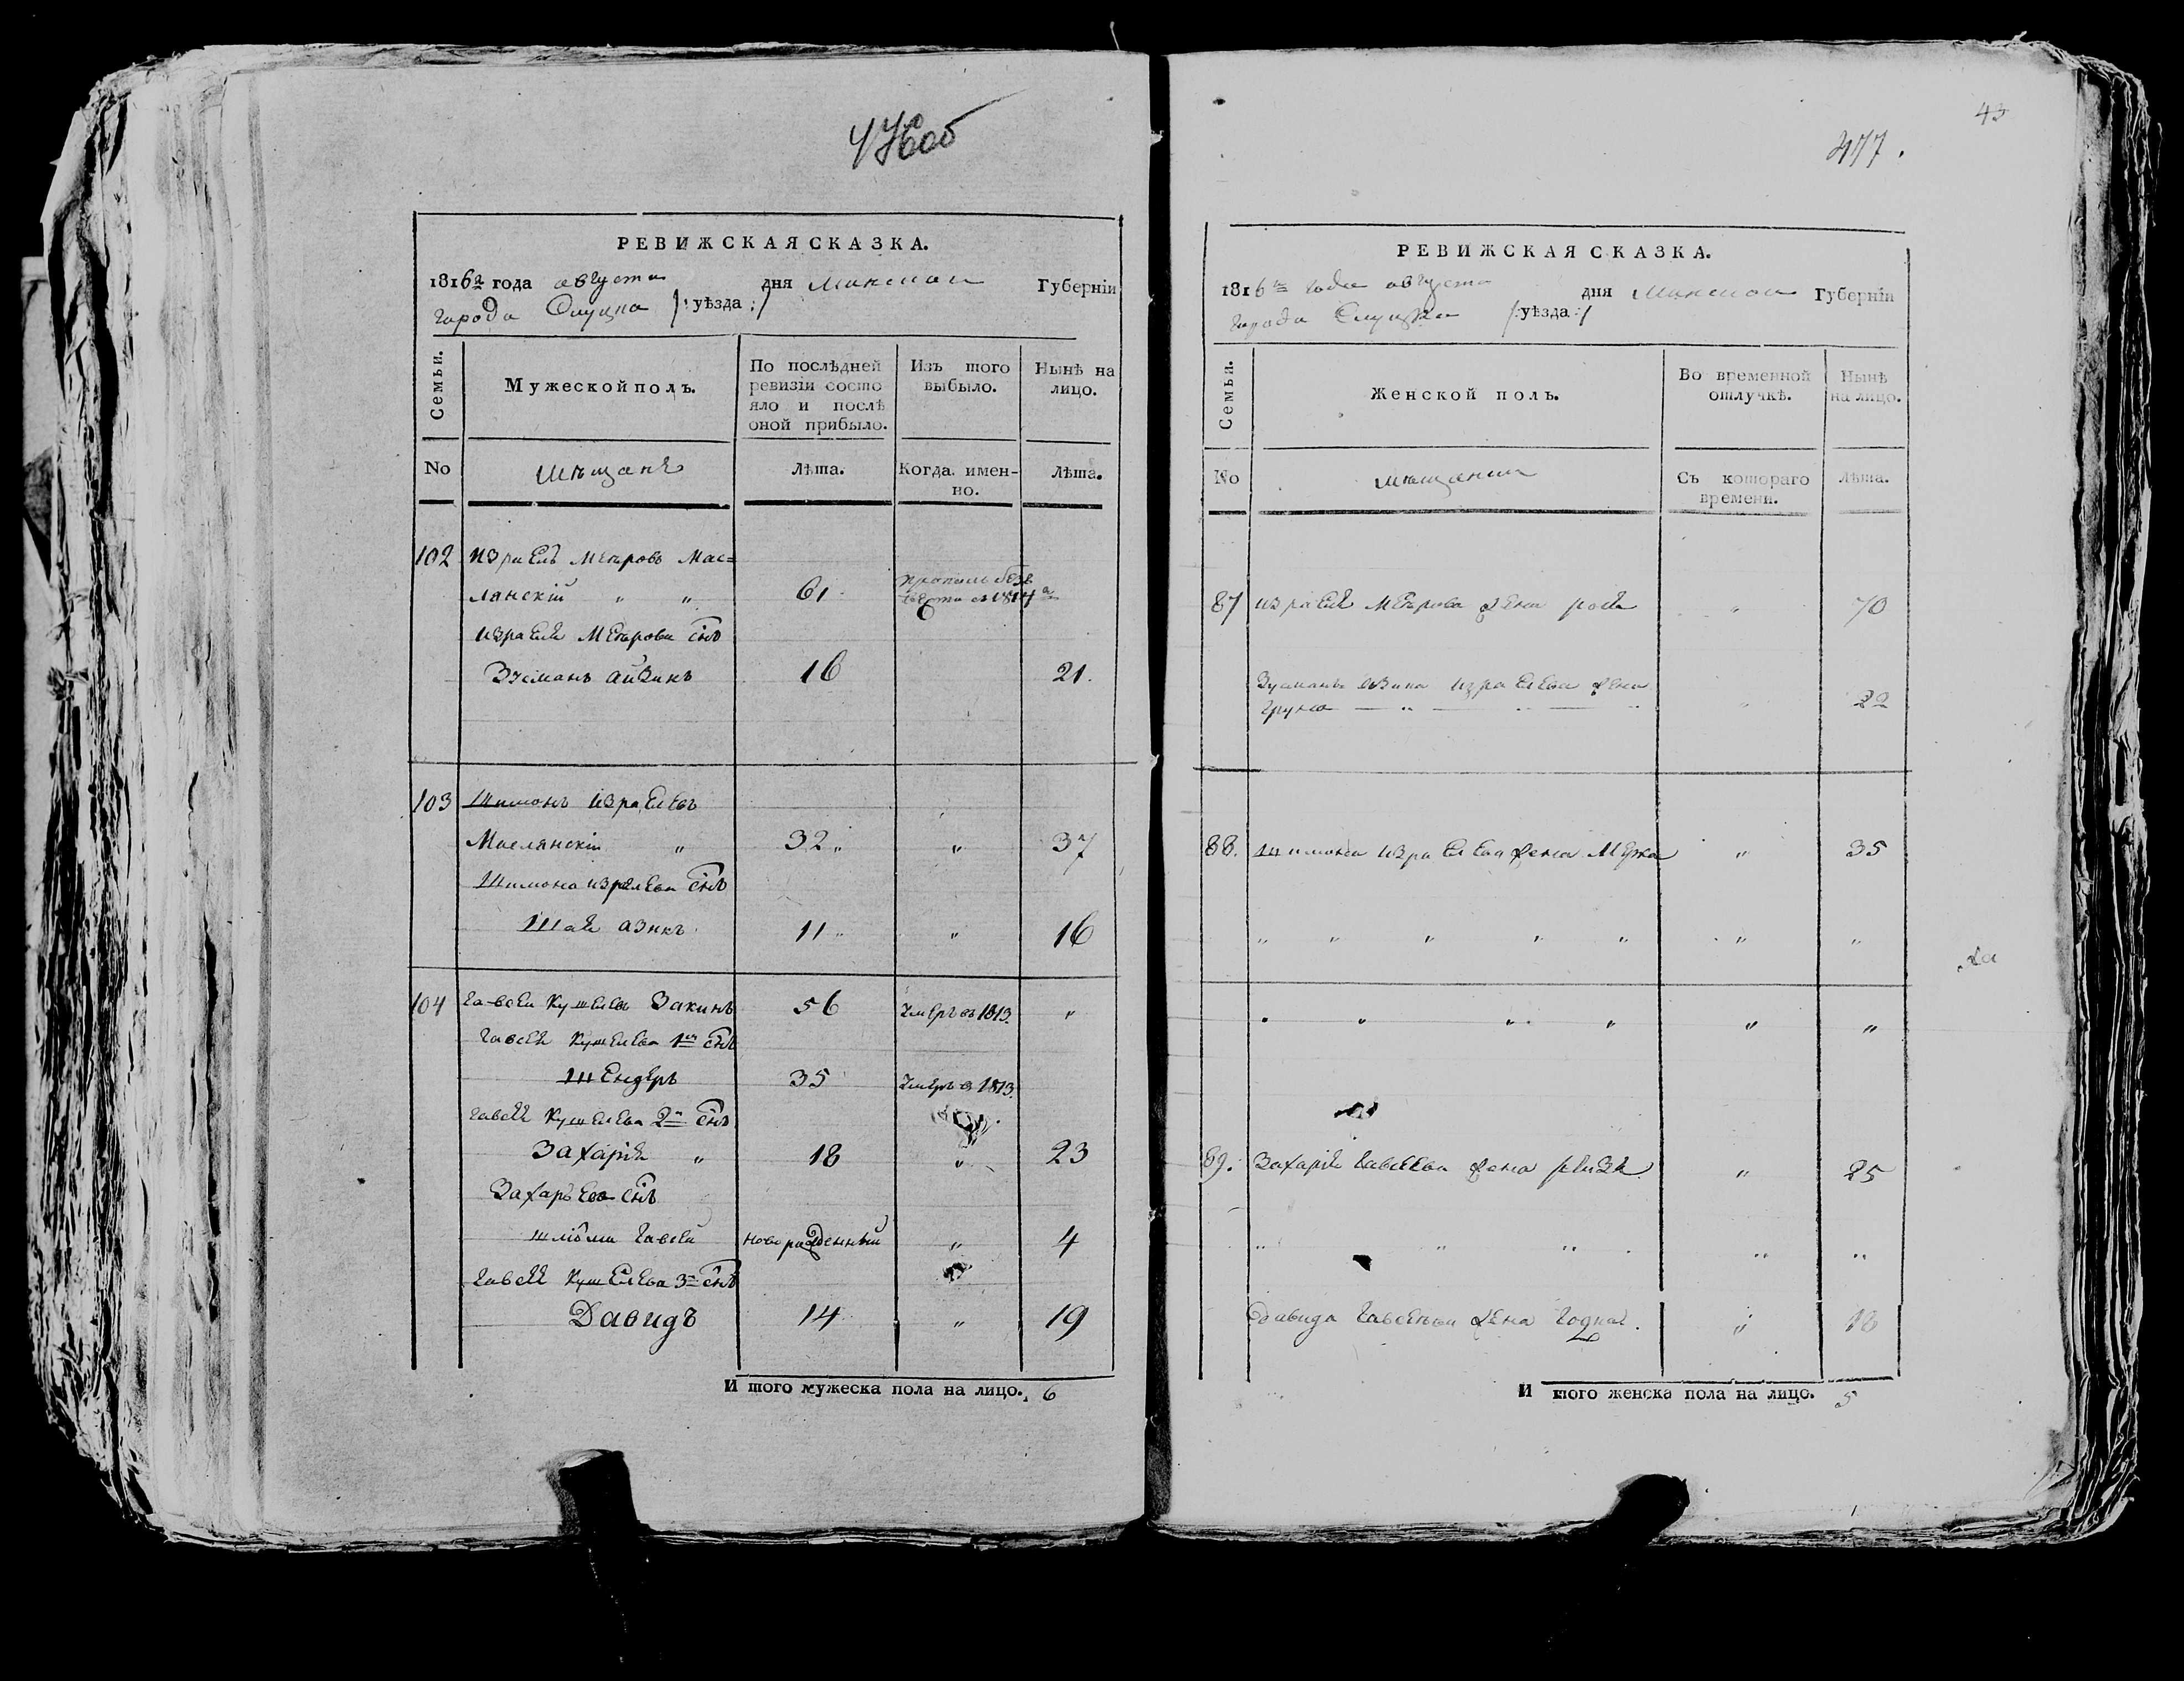 476об
РЕВИЖСКАЯ СКАЗКА.
1816го года августа дня Минской Губерніи
города Слуцка /:уѣзда:/
Семьи.
Мужеской полъ.
По послѣдней ревизіи состояло и послѣ оной прибыло.
Изъ того выбыло.
Нынѣ на лицо.
No
Мѣщанѣ
Лѣта.
Когда имен-
но.
Лѣта.
102 Израель Меѣровъ Мас=
лянскій " " 61 пропалъ безъ вести въ 1814г
Израеля Меѣрова снъ
Зусманъ Айзикъ 16 21.
103 Шимонъ Израелевъ
Маслянскій " 32 " " 37
Шимона Израелева снъ
Шая азикъ 11 " " 16
104 Гавсей Кушелевъ Закинъ 56 Умеръ въ 1813. "
Гавсея Кушелева 1й снъ
Шендеръ 35 Умеръ в 1813.
Гавсея Кушелева 2й снъ
Захарія " 18 " 23
Захарьева снъ
Шліома Гавсей новорожденный " 4
Гавсея Кушелева 3й снъ
Давидъ 14 " 19
И того мужеска пола на лицо. 6
43
477.
РЕВИЖСКАЯ СКАЗКА.
1816го года августа дня Минской Губерніи
города Слуцка /:уѣзда:/
Семьи.
Женской полъ.
Во временной отлучкѣ.
Нынѣ на лицо.
No
мѣщанки
Съ котораго
времени.
Лѣта.
87 Израеля Меѣрова жена рося " 70
Зусмана айзика Израелева жена
Груня " 22
88. Шимона Израелева жена Мерка " 35
" " " " " " "
" " " " " "
89. Захарія Гавсеева жена " 25
" " " " "
Давида Гавсеева жена " 18
И того женска пола на лицо. 5